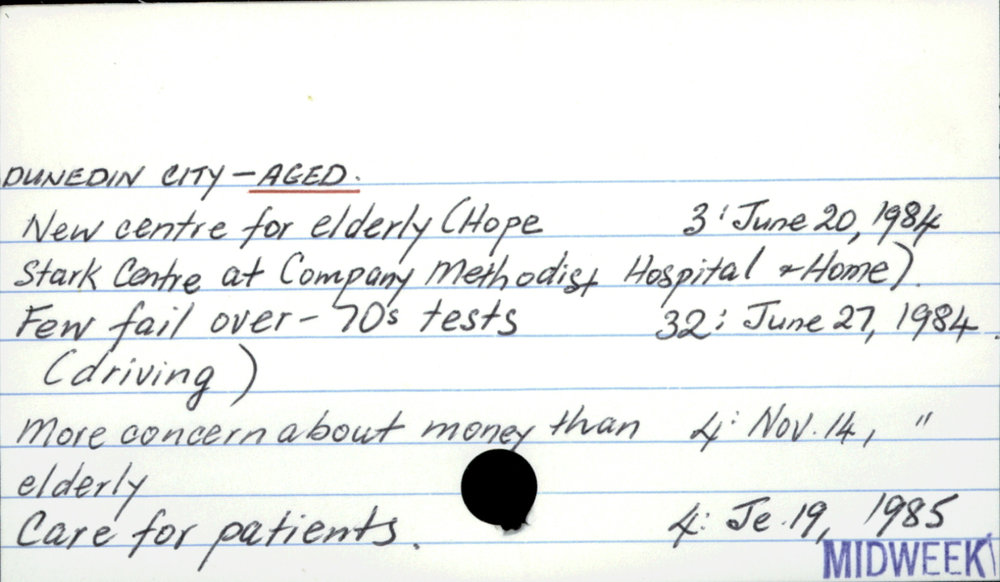 DUNEDIN CITY - AGED.
New centre for elderly (Hope 3: June 20, 1984
Stark Centre at Company Methodist Hospital & Home).
Few fail over-70s tests 32: June 27, 1984.
(driving)
More concern about money than 4: Nov. 14, "
elderly
Care for patients. 4: Je. 19, 1985
MIDWEEK